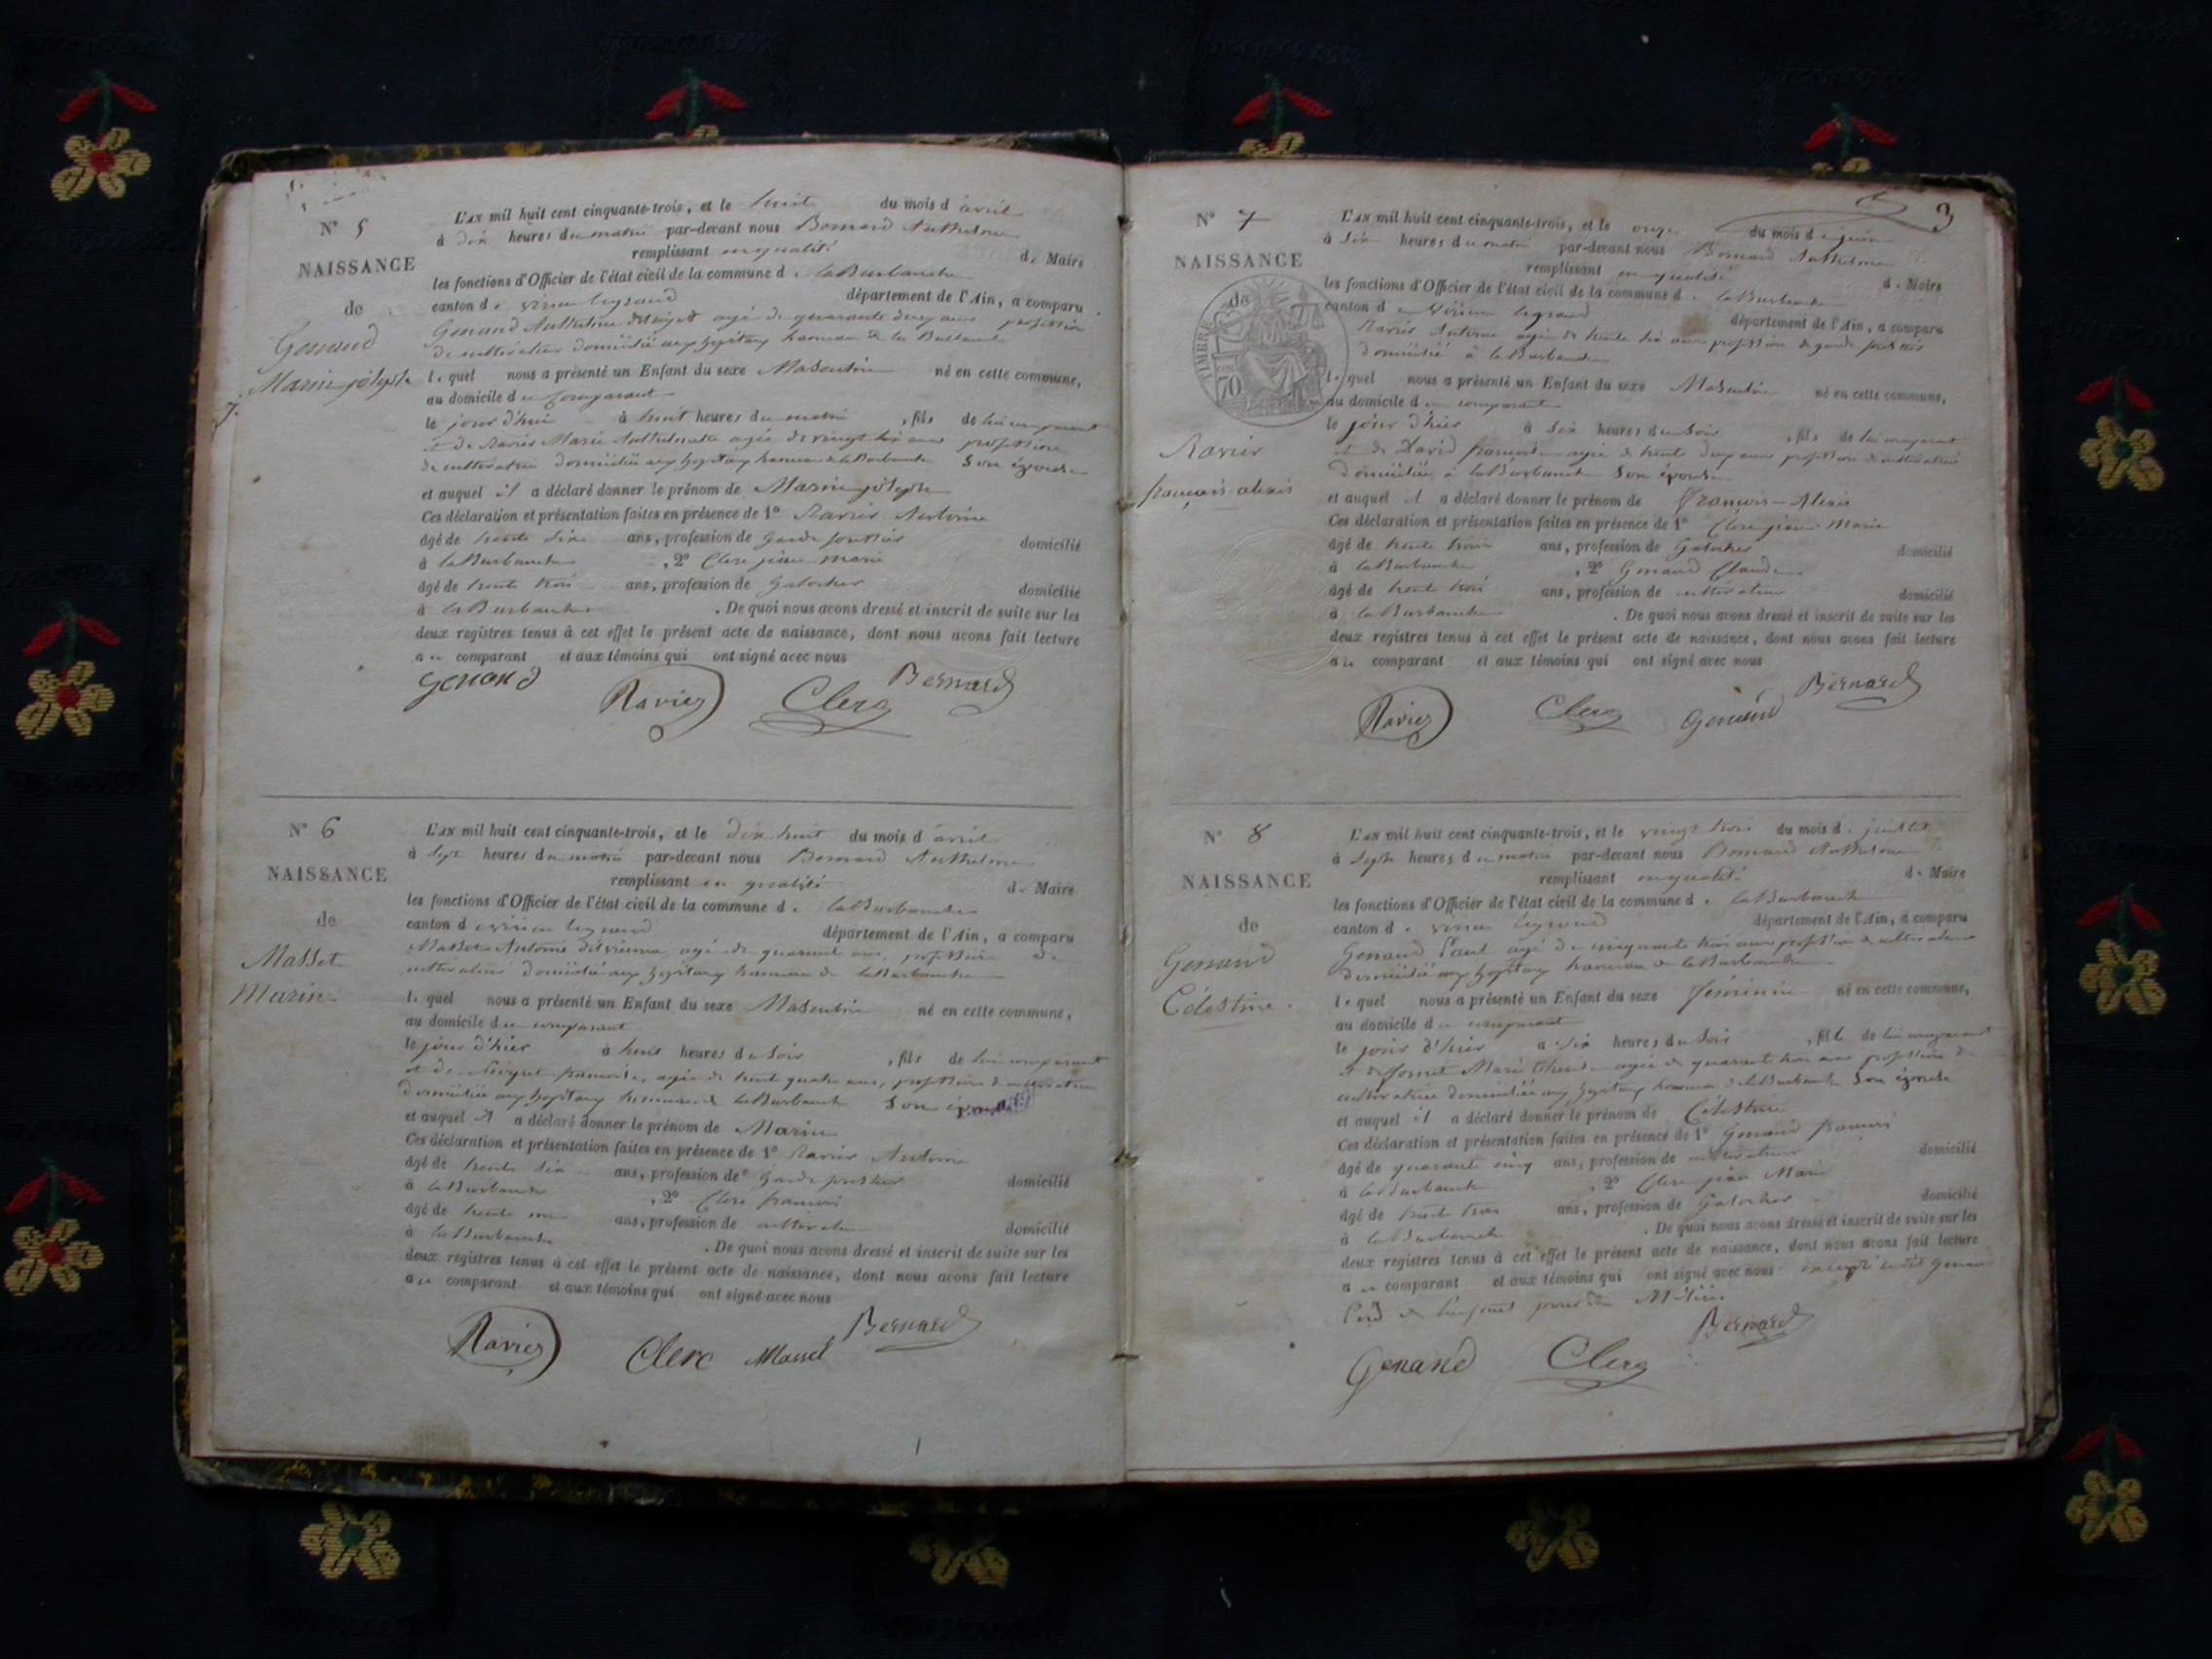 N° 5
NAISSANCE
de
Genand
Marin joseph
L'an mil huit cent cinquante-trois, et le huit du mois d'avril
à dix heures du matin par-devant nous Bernard Anthelme
remplissant en qualité de Maire
les fonctions d'Officier de l'état civil de la commune de la Burbanche
canton de virieu legrand département de l'Ain, a comparu
Genand Anthelme agé de quarante deux ans profession
de cultivateur domicilié aux hopitaux hameau de la Burbanche
lequel nous a présenté un Enfant du sexe Masculin né en cette commune,
au domicile du Comparant
le jour d'hui à huit heures du matin , fils de lui comparant
et de Ravier Marie Anthelmette agée de vingt six ans profession
de cultivatrice domiciliée aux hopitaux hameau de la Burbanche Son épouse
et auquel il a déclaré donner le prénom de Marin joseph
Ces déclaration et présentation faites en présence de 1° Ravier Antoine
âgé de trente six ans, profession de garde forestier domicilié
à la Burbanche , 2° Clerc jean marie
âgé de trente trois ans, profession de Galocher domicilié
à la Burbanche . De quoi nous avons dressé et inscrit de suite sur les
deux registres tenus à cet effet le présent acte de naissance, dont nous avons fait lecture
au comparant et aux témoins qui ont signé avec nous
Genand Ravier Clerc Bernard
N° 6
NAISSANCE
de
Masset
Marin
L'an mil huit cent cinquante-trois, et le dix huit du mois d'avril
à sept heures du matin par-devant nous Bernard Anthelme
remplissant en qualité de Maire
les fonctions d'Officier de l'état civil de la commune de la Burbanche
canton de virieu legrand département de l'Ain, a comparu
Masset Antoine agé de quarante ans, profession de
cultivateur domicilié aux hopitaux hameau de la Burbanche
lequel nous a présenté un Enfant du sexe Masculin né en cette commune,
au domicile du comparant
le jour d'hier à huit heures du Soir , fils de lui comparant
et de francoise, agée de trente quatre ans, profession de cultivatrice
domiciliée aux hopitaux hameau de la Burbanche Son épouse
et auquel il a déclaré donner le prénom de Marin
Ces déclaration et présentation faites en présence de 1° Ravier Antoine
âgé de trente six ans, profession de Garde forestier domicilié
à la Burbanche , 2° Clerc francois
âgé de trente ans, profession de cultivateur domicilié
à la Burbanche . De quoi nous avons dressé et inscrit de suite sur les
deux registres tenus à cet effet le présent acte de naissance, dont nous avons fait lecture
au comparant et aux témoins qui ont signé avec nous
Ravier Clerc Masset Bernard
3
N° 7
NAISSANCE
de
TIMBRE
70
Ravier
françois alexis
L'an mil huit cent cinquante-trois, et le onze du mois de juin
à six heures du matin par-devant nous Bernard Anthelme
remplissant en qualité de Maire
les fonctions d'Officier de l'état civil de la commune de la Burbanche
canton de Virieu legrand département de l'Ain, a comparu
Ravier Antoine agé de trente six ans profession de garde forestier
domicilié à la Burbanche
lequel nous a présenté un Enfant du sexe Masculin né en cette commune,
au domicile du comparant
le jour d'hier à six heures du Soir , fils de lui comparant
et de françoise agée de trente deux ans profession de cultivatrice
domiciliée à la Burbanche Son épouse
et auquel il a déclaré donner le prénom de François-Alexis
Ces déclaration et présentation faites en présence de 1° Clerc jean Marie
âgé de trente trois ans, profession de Galocher domicilié
à la Burbanche , 2° Genand Claude
âgé de trente trois ans, profession de cultivateur domicilié
à la Burbanche . De quoi nous avons dressé et inscrit de suite sur les
deux registres tenus à cet effet le présent acte de naissance, dont nous avons fait lecture
au comparant et aux témoins qui ont signé avec nous
Ravier Clerc Genand Bernard
N° 8
NAISSANCE
de
Genand
Célestine
L'an mil huit cent cinquante-trois, et le vingt trois du mois de juillet
à Sept heures du matin par-devant nous Bernard Anthelme
remplissant en qualité de Maire
les fonctions d'Officier de l'état civil de la commune de la Burbanche
canton de virieu legrand département de l'Ain, a comparu
Genand Paul agé de cinquante trois ans profession de cultivateur
domicilié aux hopitaux hameau de la Burbanche
lequel nous a présenté un Enfant du sexe féminin né en cette commune,
au domicile du comparant
le jour d'hier à six heures du Soir , fille de lui comparant
et de Marie agée de quarante trois ans profession de
cultivatrice domiciliée aux hopitaux hameau de la Burbanche Son épouse
et auquel il a déclaré donner le prénom de Célestine
Ces déclaration et présentation faites en présence de 1° Genand francois
âgé de quarante cinq ans, profession de cultivateur domicilié
à la Burbanche , 2° Clerc jean Marie
âgé de trente trois ans, profession de Galocher domicilié
à la Burbanche . De quoi nous avons dressé et inscrit de suite sur les
deux registres tenus à cet effet le présent acte de naissance, dont nous avons fait lecture
au comparant et aux témoins qui ont signé avec nous excepté ledit Genand
Père de l'enfant
Genand Clerc Bernard